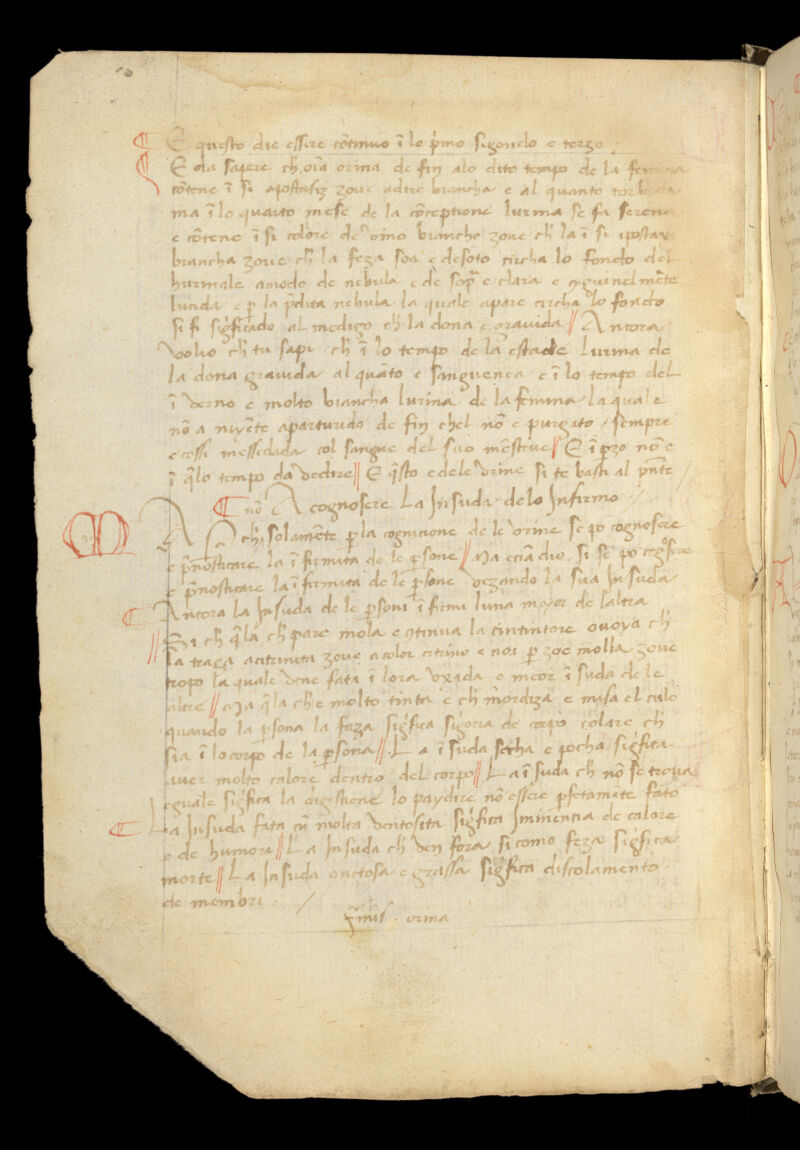 E questo die essere cõtinuo ĩ lo p̃mo sigondo e terzo
E da sapere ch̃ orina de fin alo dito tempo de la femena
cõtene ĩ si apostasiz zoue adire biancha e al quanto torbida
ma ĩ lo quarto mese de la cõceptione lurina se fi serena
e cõtene ĩ si colore de vino biancho zoue ch̃ la ĩ si
biancha zoue ch̃ la feza soa e desoto circha lo fondo del
hurinale amodo de nebula e de sop̃ e clara e
lucida e ꝑ la p̃dita nebula la quale apare circha lo fondo
si fi sig̃ficado al medigo ch̃ la dona e gravida // Ancora
volio ch̃ tu sapi ch̃ ĩ lo tempo de la estade lurina de
la dona gravida al quãto e sanguenea e ĩ lo tempo del
ĩverno e molto biancha lurina de la femina la quale
nõ a aparturido de fin chel nõ e purgato / sempre
e cossi messedada col sangue del suo mẽstruo // E ĩ ꝑzo nõ e
ĩ q̃lo tempo da vedire // E q̃sto e dele urine si te basti al p̃nte
A cognosere La Insuda delo Infirmo
M nõ ch̃ solamẽte ꝑ la cognicione de le urine se po cognosere
e p̃nosticare la ĩfirmita de le ꝑsone // Ma eciã dio si se po cog̃osere
e p̃nosticare la ĩfirmita de le ꝑsone vezando la sua Insuda
Ancora la Insuda de le ꝑsoni ĩfirmi luna mazor de laltra
Si ch̃ q̃la ch̃ pare mola e cõtinua la ch̃
la traga acitrinita zoue a color citrino e noi ꝑ zoe molla zoue
tropo la quale vene fata ĩ lora e meior ĩsuda de le
altre // Ma q̃la ch̃ e molto tinta e ch̃ mordiza e el culo
quando la ꝑsona la faza sig̃fica sigoria de corpo colare ch̃
sia ĩ lo corpo de la ꝑsona // La ĩsuda secha e pocha sig̃fica
aver molto calore dentro del corpo // La ĩsuda ch̃ nõ se trova
eguale sig̃fica la digestione lo paydire nõ essere ꝑfetamẽte fato
La Insuda fata cũ molta ventosita sig̃fica de calore
e de humori // La Insuda ch̃ ven fora si como feza sig̃fica
morte // La Insuda onctosa e grassa sig̃fica discolamento
de membri
orina